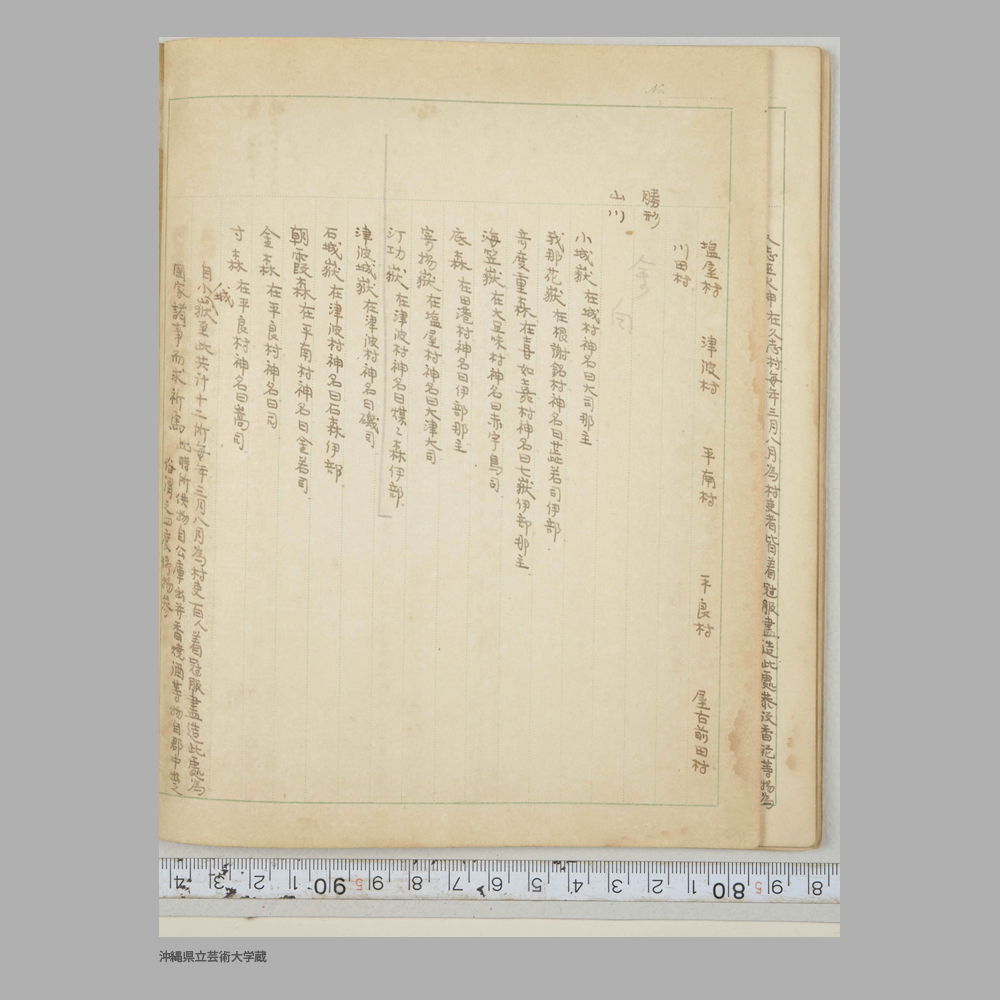 久志巫火神 在久志村每年三月八月為村吏者皆着冠服盡造此處恭設香花等物為
塩屋村 津波村 平南村 平良村 屋古前田村
川田村
勝形
山川
小城嶽 在城村神名曰大司那主
我那花嶽 在根謝銘村神名曰甚若司伊部
奇度重森 在喜如嘉村神名曰七嶽伊部那主
海笠嶽 在大宜味村神名曰赤字鳥司
底森 在田港村神名曰伊部那主
寄揚嶽 在塩屋村神名曰大津大司
汀功嶽 在津波村神名曰煤々森伊部
津波城嶽 在津波村神名曰磯司
石城嶽 在津波村神名曰石森伊部
朝霞森 在平南村神名曰金若司
金森 在平良村神名曰司
寸森 在平良村神名曰嵩司
自小城嶽至此共計十二所每年三月八月為村吏百人着冠服盡造此處為
國家諸事而求祈焉 此時所供物自公庫出并香焼酒等物自郡中出之
俗謂之四度御物参
沖縄県立芸術大学蔵